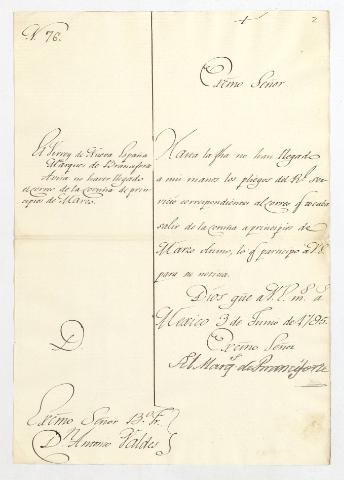 N. 76.
2
Exmo Señor
El Virrey de Nueva España
Marques de Branciforte
Avisa no haver llegado
el correo de la coruña de prin-
cipios de Marzo.
Hasta la fha no han llegado
a mis manos los pliegos del Rl. Ser-
vicio correspondientes al correo q. acaba
salir de la coruña a principios de
Marzo ultimo, lo q. participo à V.E.
para su noticia.
Dios gũe a V.E. m. a.
Mexico 3 de Junio de 1795.
Exmo Señor
El Marqs. de Branciforte
D
Exmo Señor B.o Fr.
Dn. Antonio Valdes